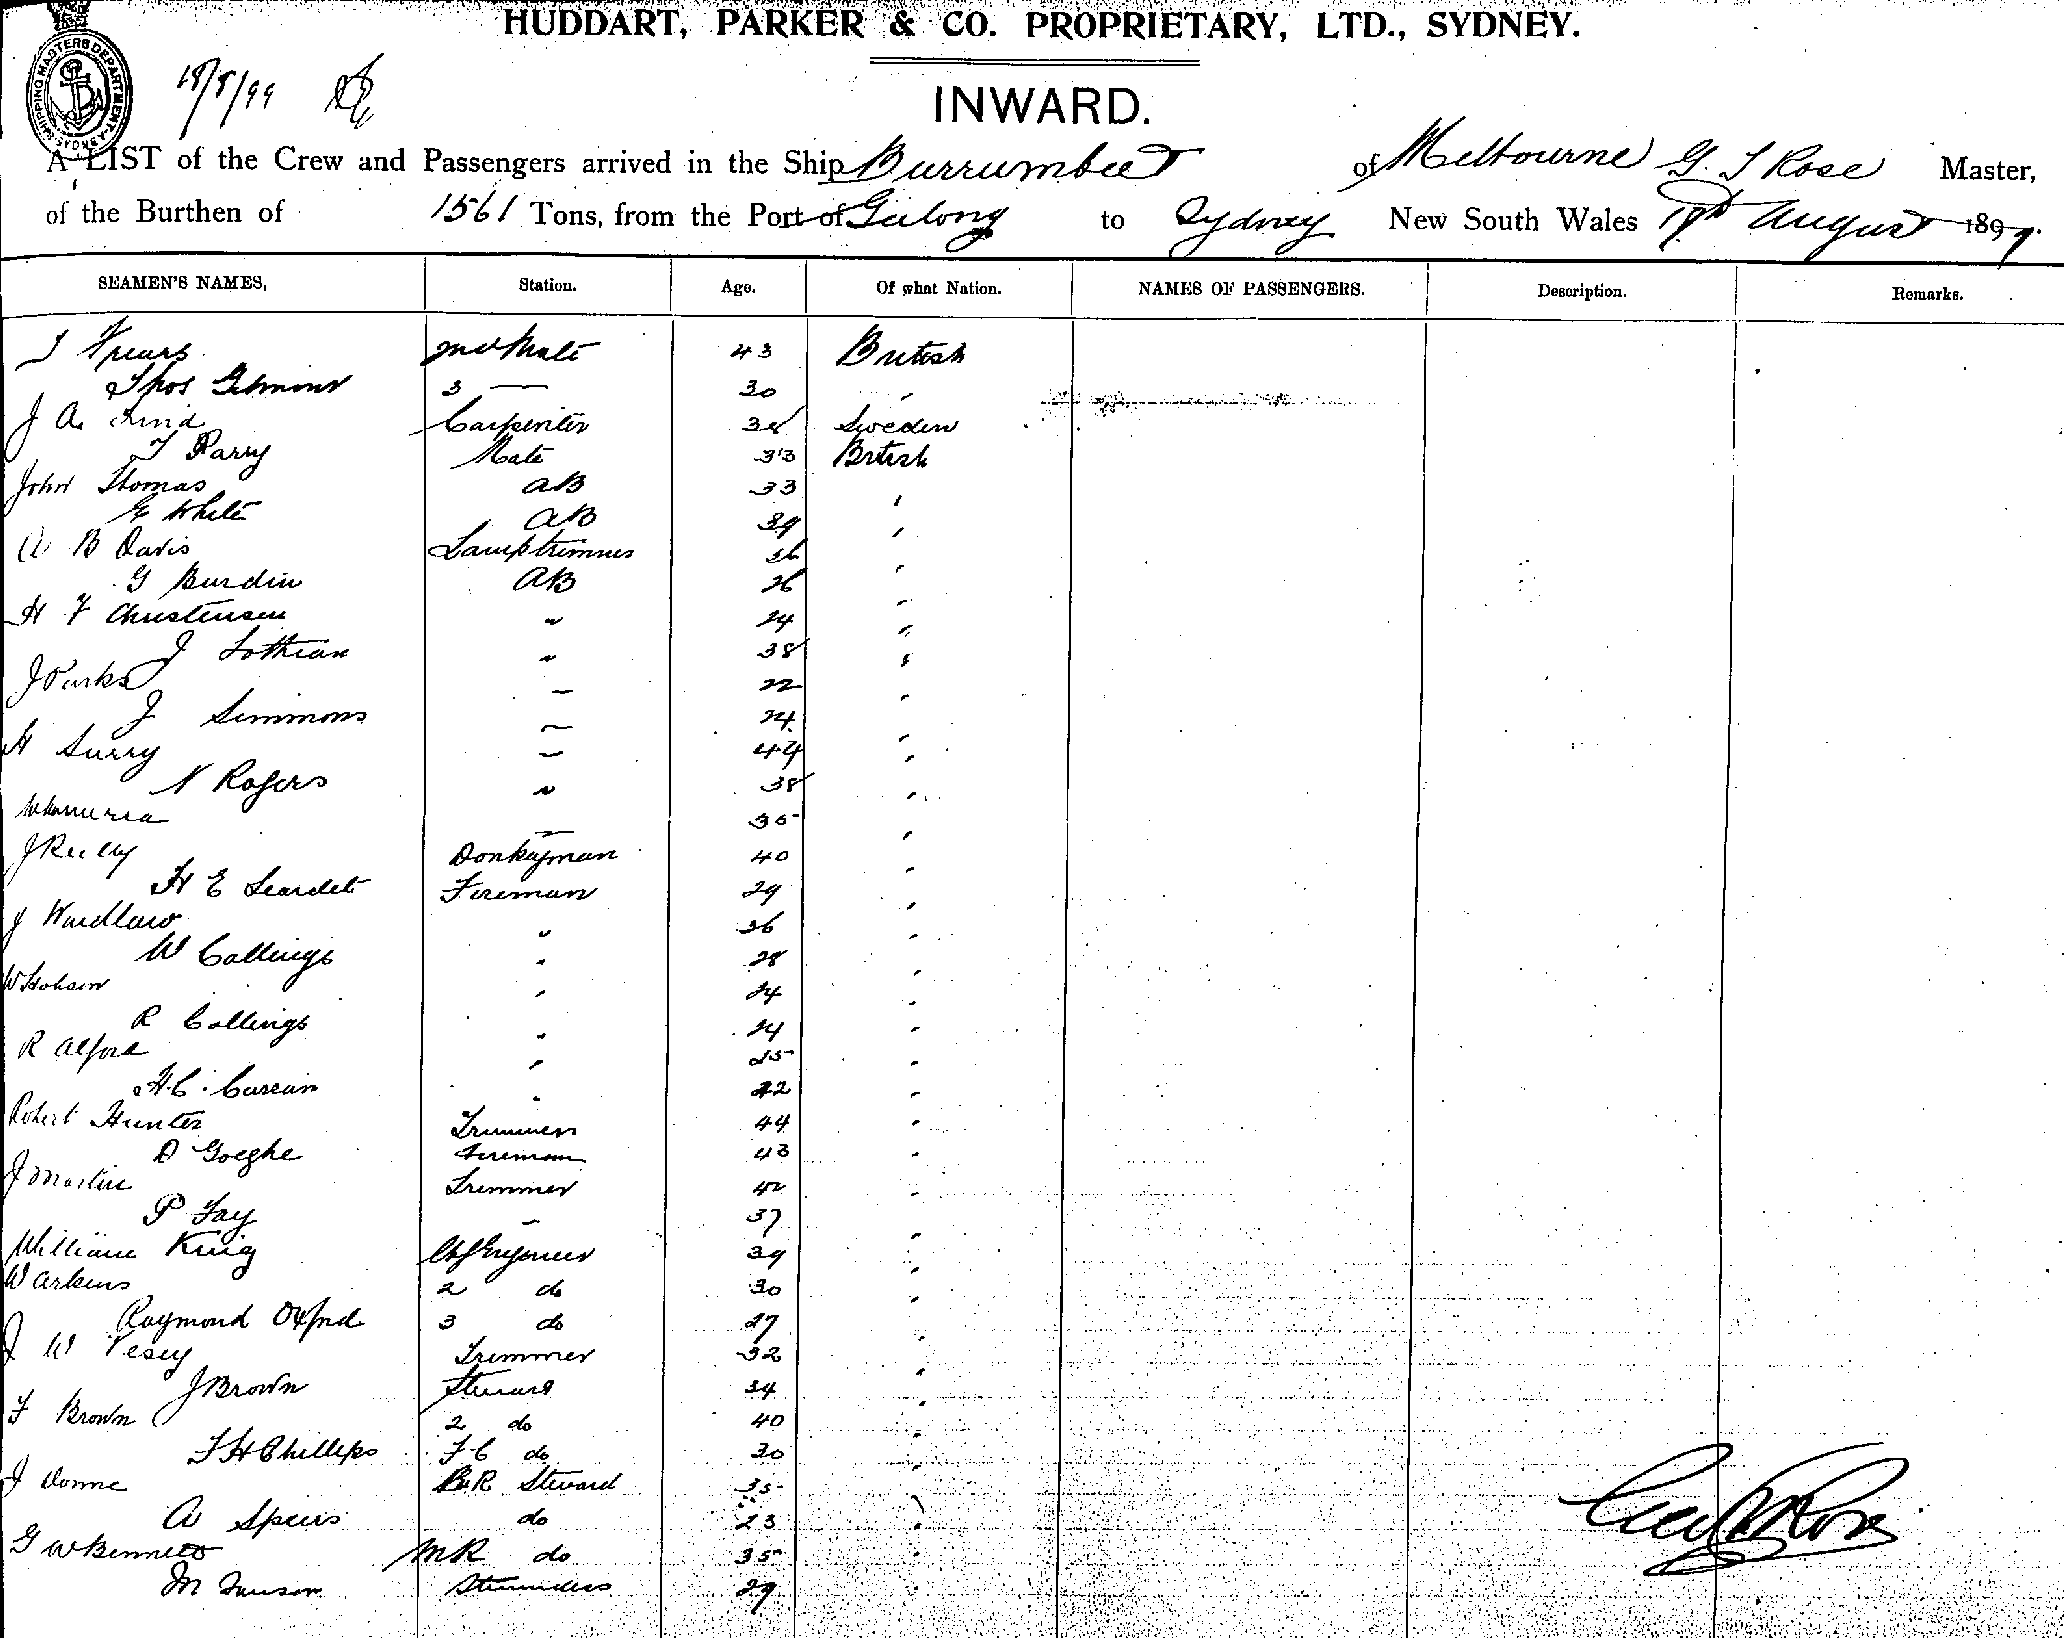 HUDDART, PARKER & CO. PROPRIETARY, LTD., SYDNEY.
SHIPPING MASTERS DEPARTMENT
18/8/99
INWARD.
A LIST of the Crew and Passengers arrived in the Ship Burrumbeet of Melbourne G. T Rose Master,
of the Burthen of 1561 Tons, from the Port of Geelong to Sydney New South Wales 18th August 1899.
SEAMEN'S NAMES, Station. Age. Of what Nation. NAMES OF PASSENGERS. Description. Remarks.
Mate 43 British
Thos 3 — 30 "
J A Lind Carpenter Sweden
T Parry Mate 33 British
John Thomas AB 33 "
G White AB 39 "
A B Davis Lamptrimmer 36 "
G Burdin AB 26 "
H F Christensen " 24 "
J Lothian " 38 "
J Parks " 22 "
J Simmons " 24 "
H Surry " 44 "
N Rogers " 38 "
" 35 "
J Reilly Donkeyman 40 "
H E Fireman 29 "
J Wardlaw " 36 "
W Collings " 28 "
W Hobson " 24 "
R Collings " 24 "
R Alford " 25 "
H. C. Curran " 42 "
Robert Hunter Trimmer 44 "
D Goeghe Fireman 43 "
J Martin Trimmer 42 "
P Fay " 37 "
William King Chf Engineer 39 "
W Arkins 2 do 30 "
Raymond Oxford 3 do 27 "
J W Vesey Trimmer 32 "
J Brown Steward 34 "
F Brown 2 do 40 "
T H Phillips F C do 30 "
J Donne B.R Steward 35 "
A Speirs do 23 "
G W Bennett MR do 35 "
M Stewardess 29